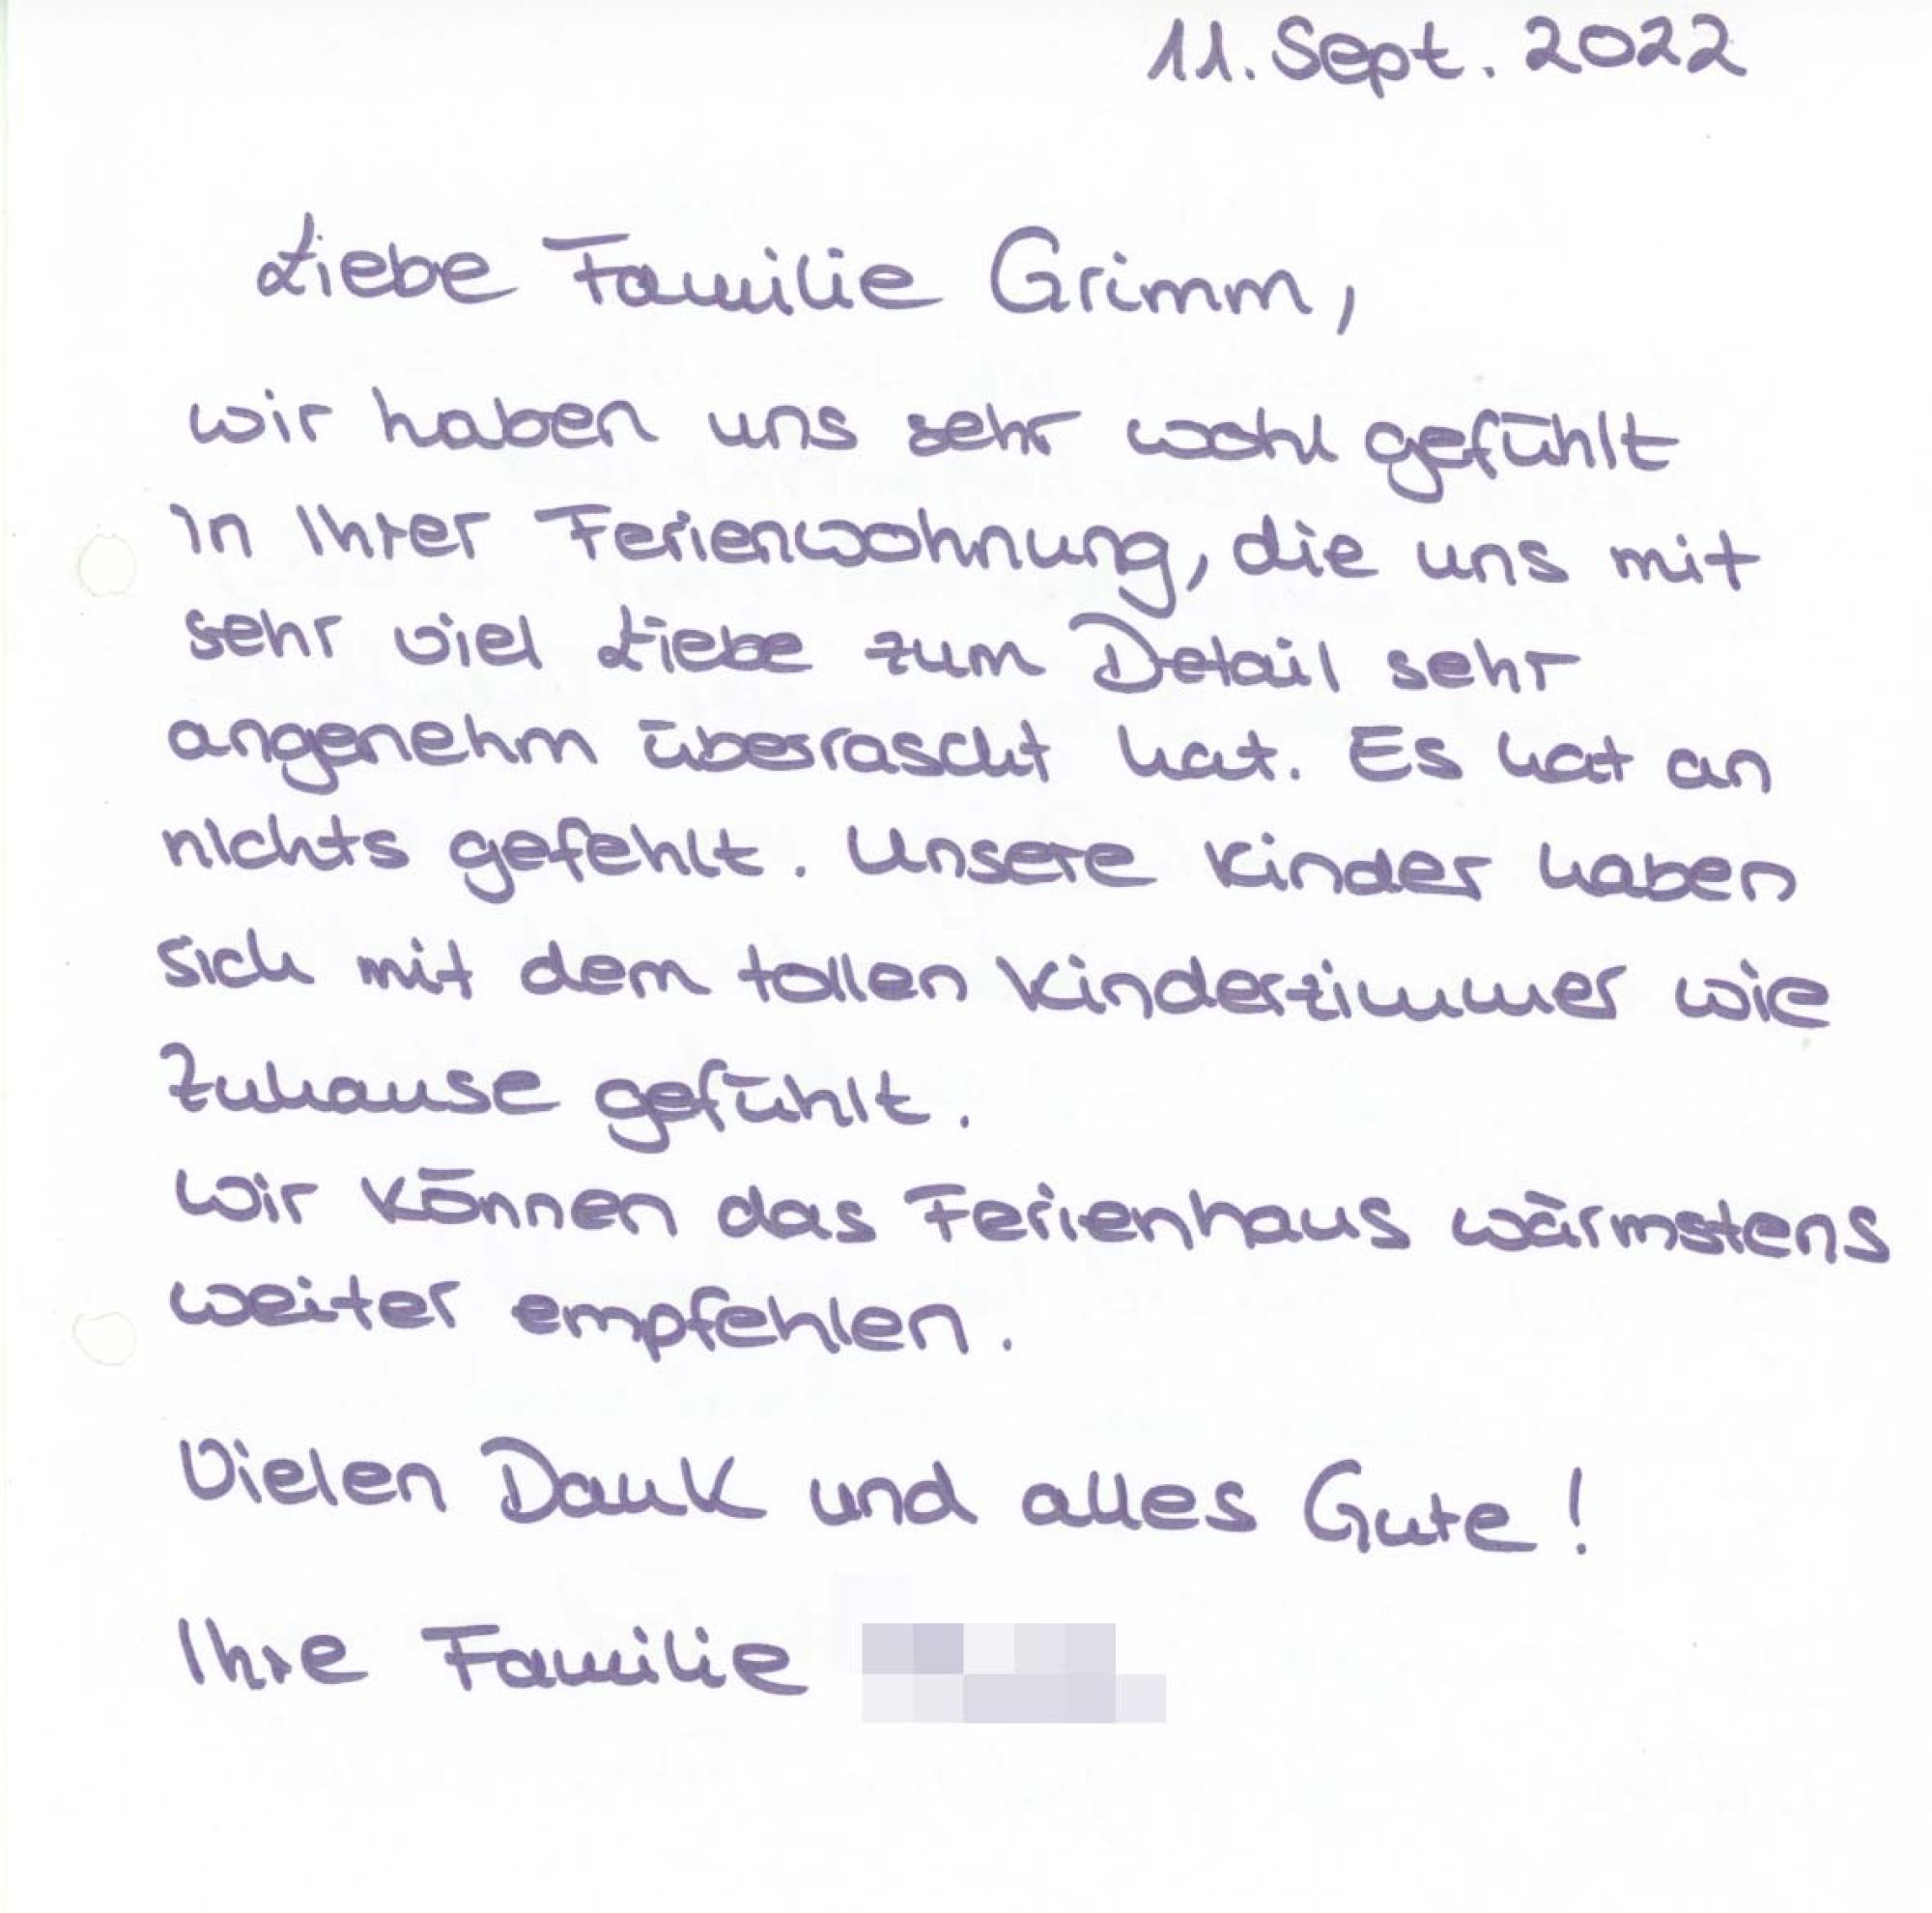 11. Sept. 2022
Liebe Familie Grimm,
wir haben uns sehr wohl gefühlt
in Ihrer Ferienwohnung, die uns mit
sehr viel Liebe zum Detail sehr
angenehm überrascht hat. Es hat an
nichts gefehlt. Unsere Kinder haben
sich mit dem tollen Kinderzimmer wie
Zuhause gefühlt.
Wir können das Ferienhaus wärmstens
weiter empfehlen.
Vielen Dank und alles Gute!
Ihre Familie